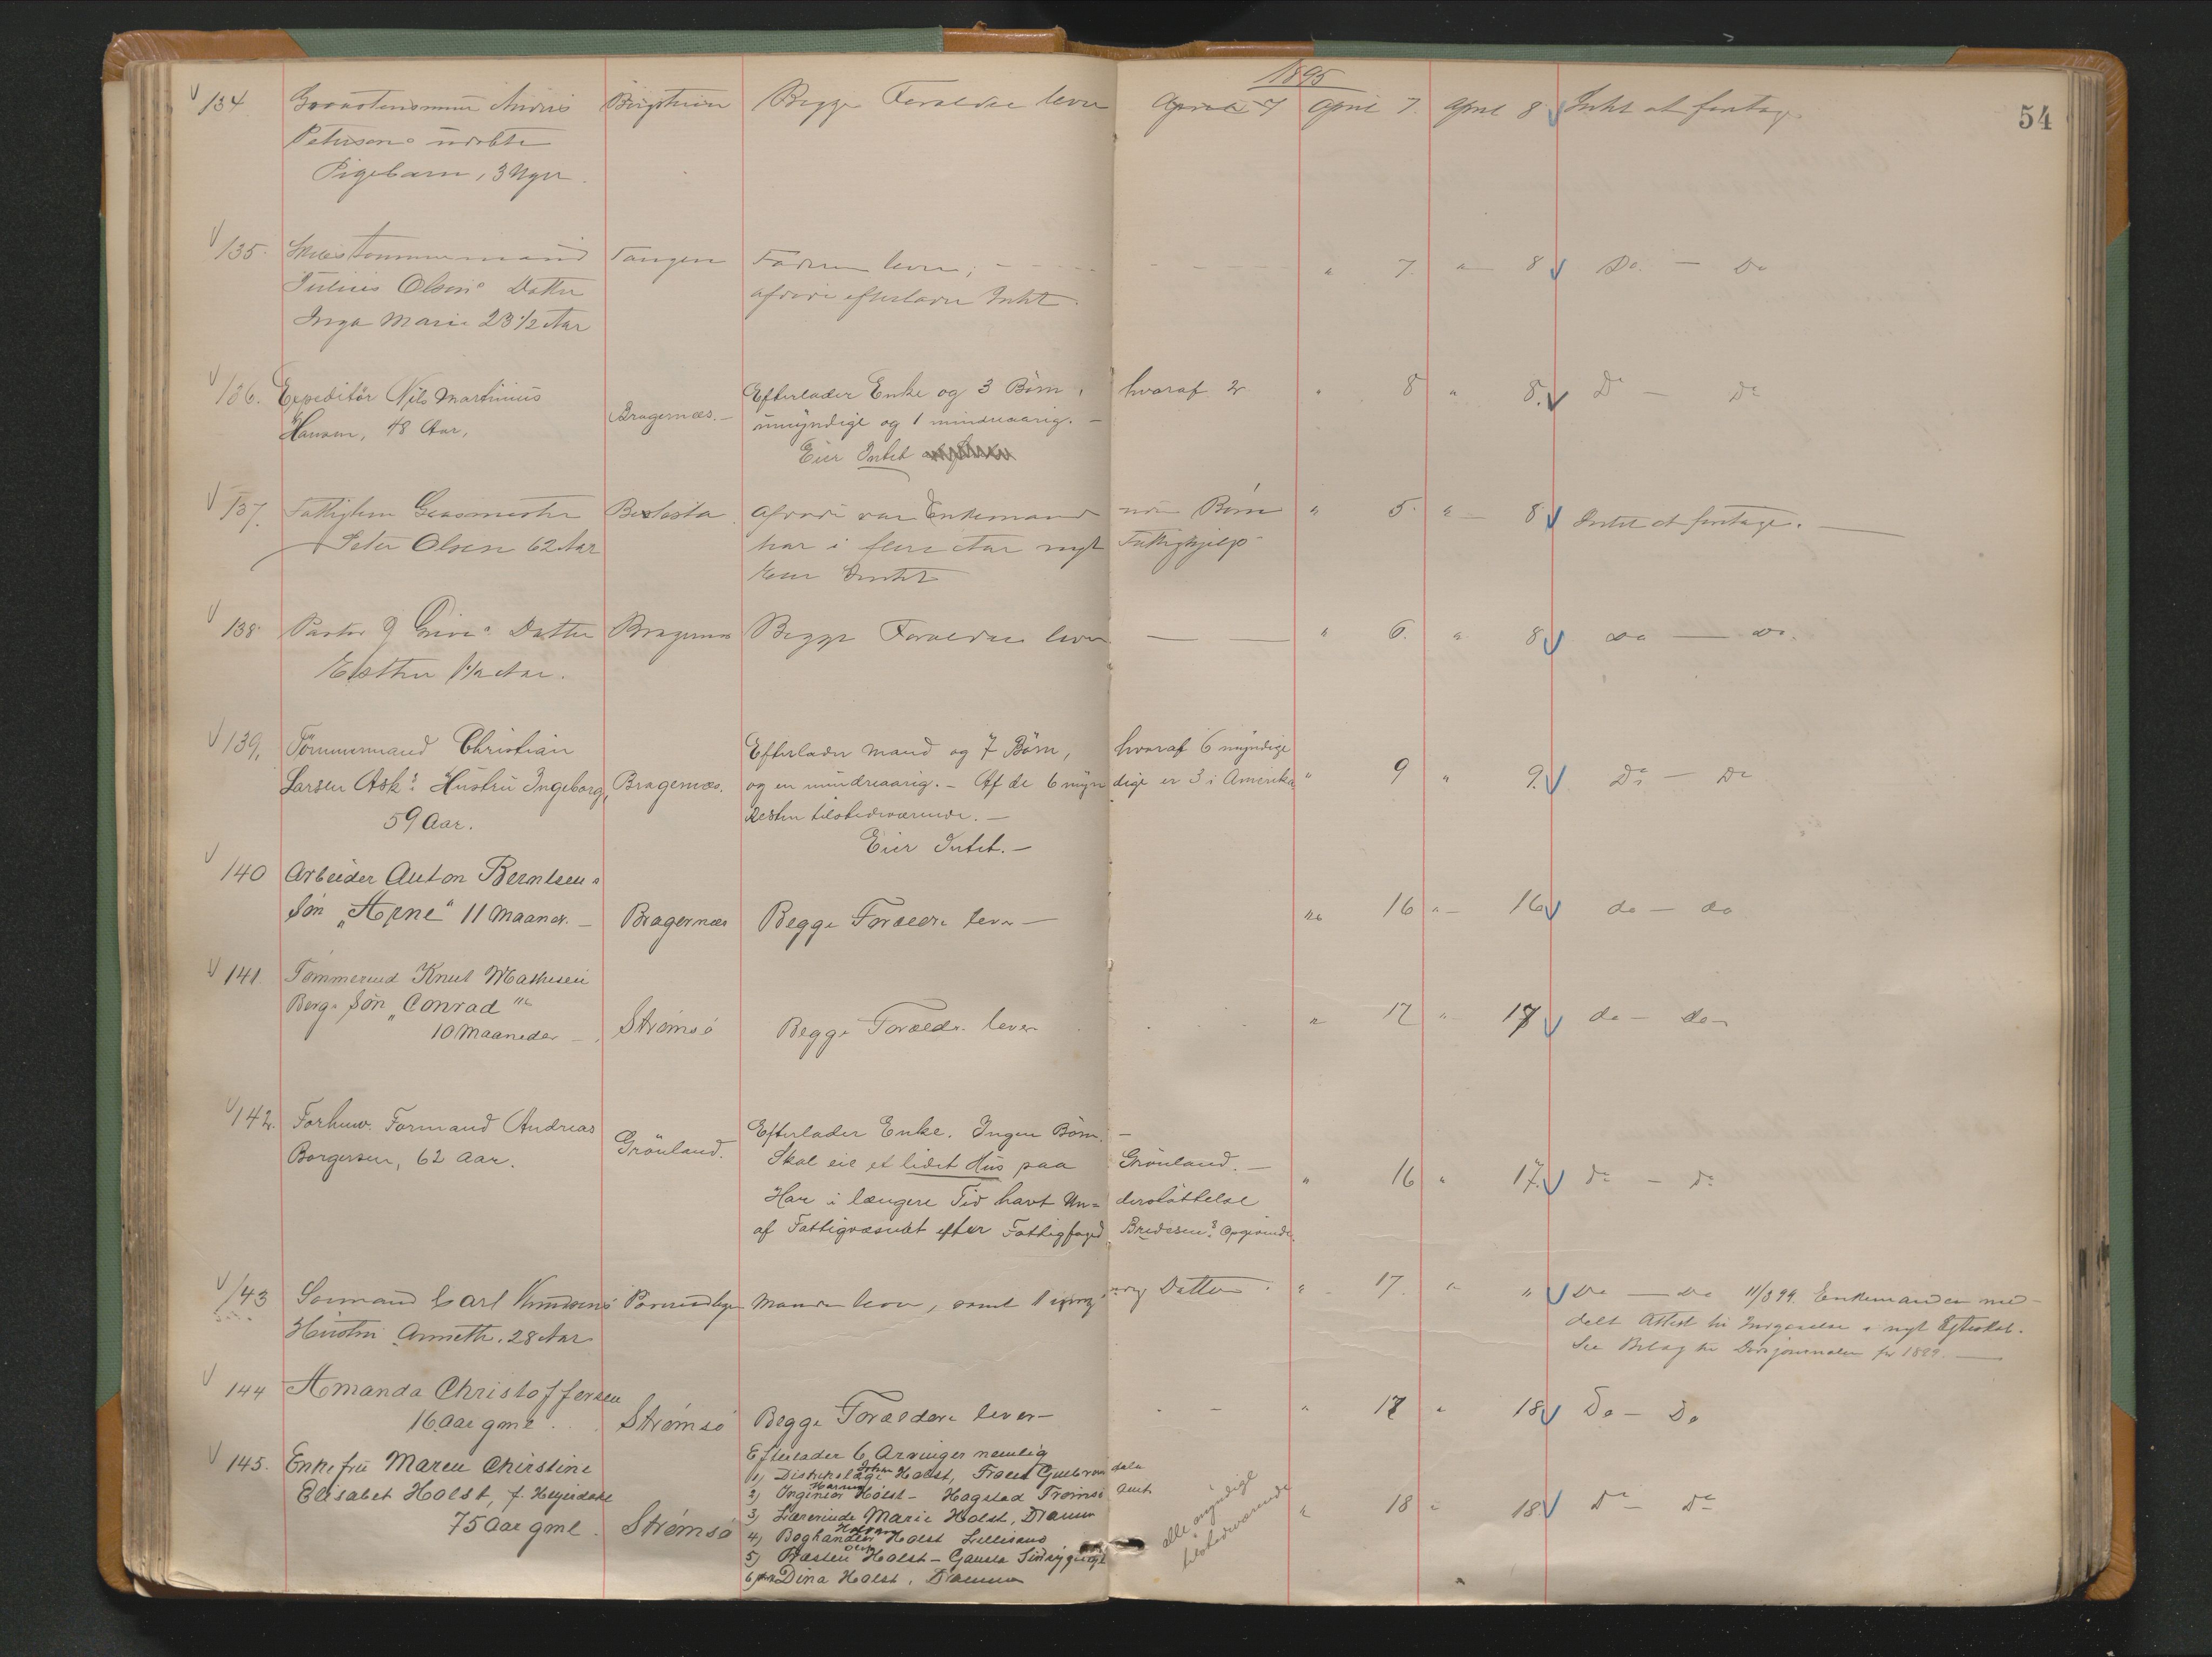 1895
54
134 Andreas Begge Forældre lever April 7 April 7. April 8 Intet at foretage
Petersens udøbte
Pigebarn, 3 Uger.
135. Tangen Faderen lever; " 7. " 8 Do. — Do
Julius Olsens Datter afdøde efterlader Intet.
Inga Marie 23 1/2 Aar
136. Expeditör Nils Martinius Efterlader Enke og 3 Börn, hvoraf 2 " 8 " 8. Do — Do
Hansen, 48 Aar, Bragernæs. — umyndige og 1 mindreaarig. —
Eier Intet
137. Fattiglem Glasmester Afdøde var Enkemand uden Børn " 5. " — 8 Intet at foretage. —
Peter Olsen 62 Aar har i flere Aar nydt Fattighjelp
Intet
138. Pastor Datter Bragernes Begge Forældre lever — — " 6. " 8 do — do.
Esther 1 1/2 Aar.
139, Tömmermand Christian Efterlader Mand og 7 Börn, hvoraf 6 myndige
Larsen Asks Hustru Ingeborg, Bragernæs. og en mindreaarig. — Af de 6 myndige er 3 i Amerika, " 9 " 9. Do — Do
59 Aar. Resten tilstedeværende. —
Eier Intet. —
140 Arbeider Anton Berntsens
Sön „Arne“ 11 Maaner. — Bragernæs Begge Forældre lever — " 16 " — 16 do — do
141. Tømmermd Knut Mathisen
Bergs Sön „Conrad“ Strømsö Begge Forældre lever " 17 " 17 do — do —
10 Maaneder —
142. Forhenv. Formand Andreas Grönland. Efterlader Enke. Ingen Börn. —
Borgersen, 62 Aar. Skal eie et lidet Hus paa Grönland. — " 16 " 17. do — do
Har i længere Tid havt Un= derstöttelse
af Fattigvæsenet efter Fattigfoged Bredesens Opgivende.
143 Sømand Carl Knudsens Manden lever, samt 1 Datter. " 17. " " Do — Do 11/3 99. Enkemanden med-
Hustru Annette, 28 Aar delt Attest til Indgaaelse i nyt Egteskab.
Se Bilag til Dødsjournalen for 1899. —
144 Amanda Christoffersen
16 Aar gml. Strømsö Begge Forældre lever — " 17 " 18 Do — Do
145. Enkefru Maren Chirstine Efterlader 6 Arvinger nemlig
Elisabet Holst, f. Heyerdahl 1) Distriktslæge Johan Holst, Gudbrandsdalen
75 Aar gml. Strømsö 2) Ingeniør Holst — Hagstad Tromsö Amt
3) Lærerinde Marie Holst, Dramm " 18 " 18 Do — Do
4) Boghandler Holst Lillesand
5) Præsten Holst —
6) Dina Holst, Drammen
alle myndige
tilstedeværende